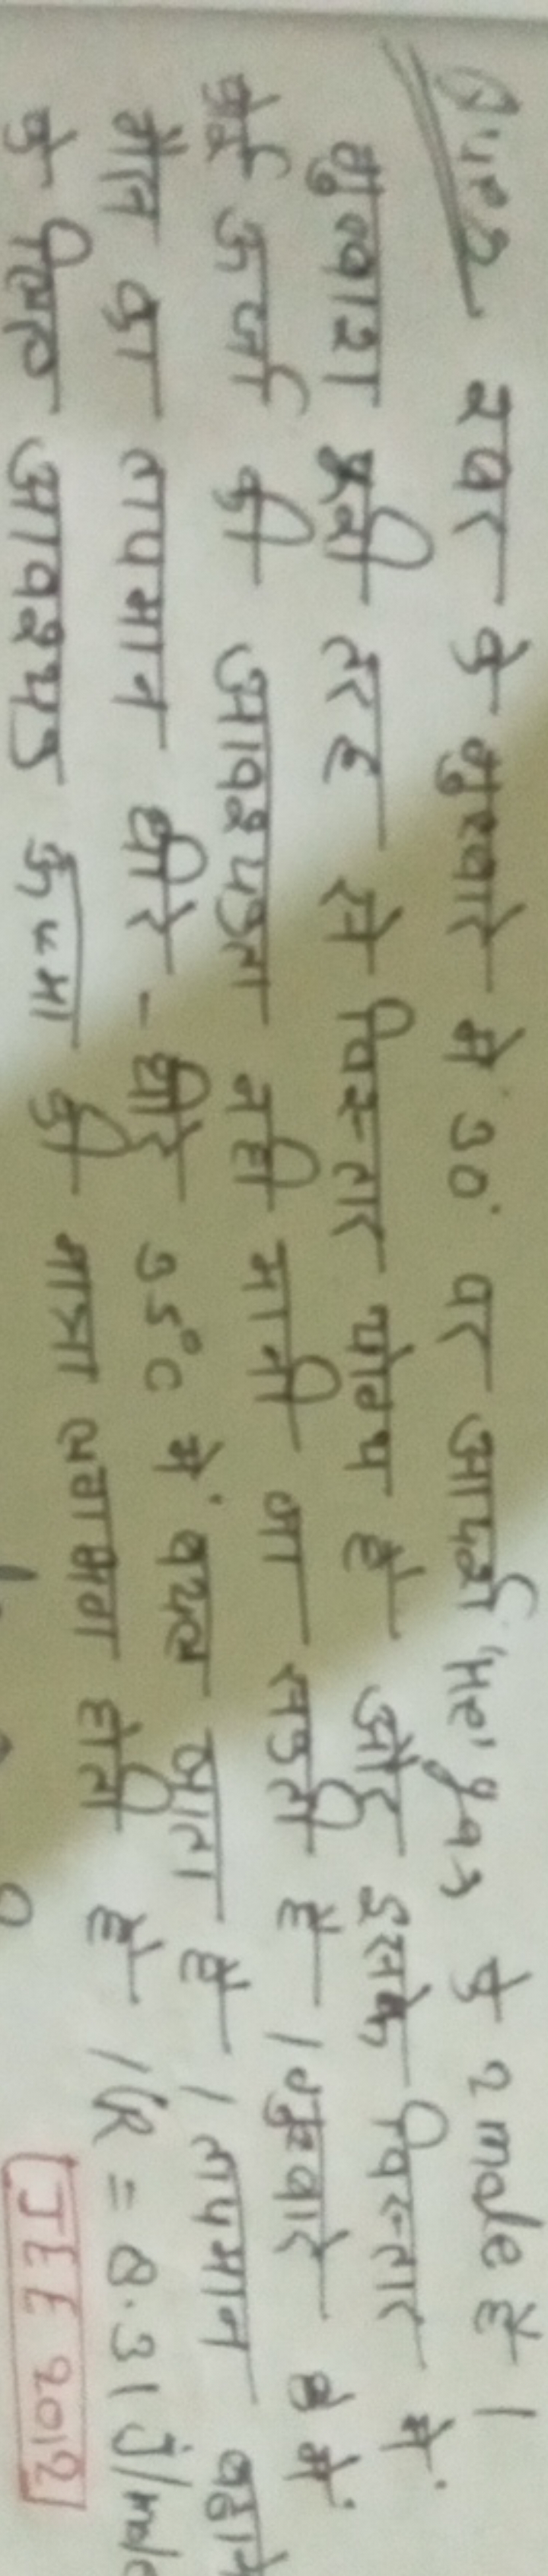 Ques रबर के गुब्बारे में 30° पर आदर्श 'He' gas के 2 mole है।
गुब्बारा पूरी तरह से विस्तार योग्य है और इसके विस्तार में
कोई ऊर्जा की आवश्यकता नही मानी जा सकती है। गुब्बारे में
गैस का तापमान धीरे-धीरे 35°C में बदल जाता है। तापमान बढ़ाने
के लिए आवश्यक ऊष्मा की मात्रा लगभग होती है। R = 8.31 J/mole
JEE 2012